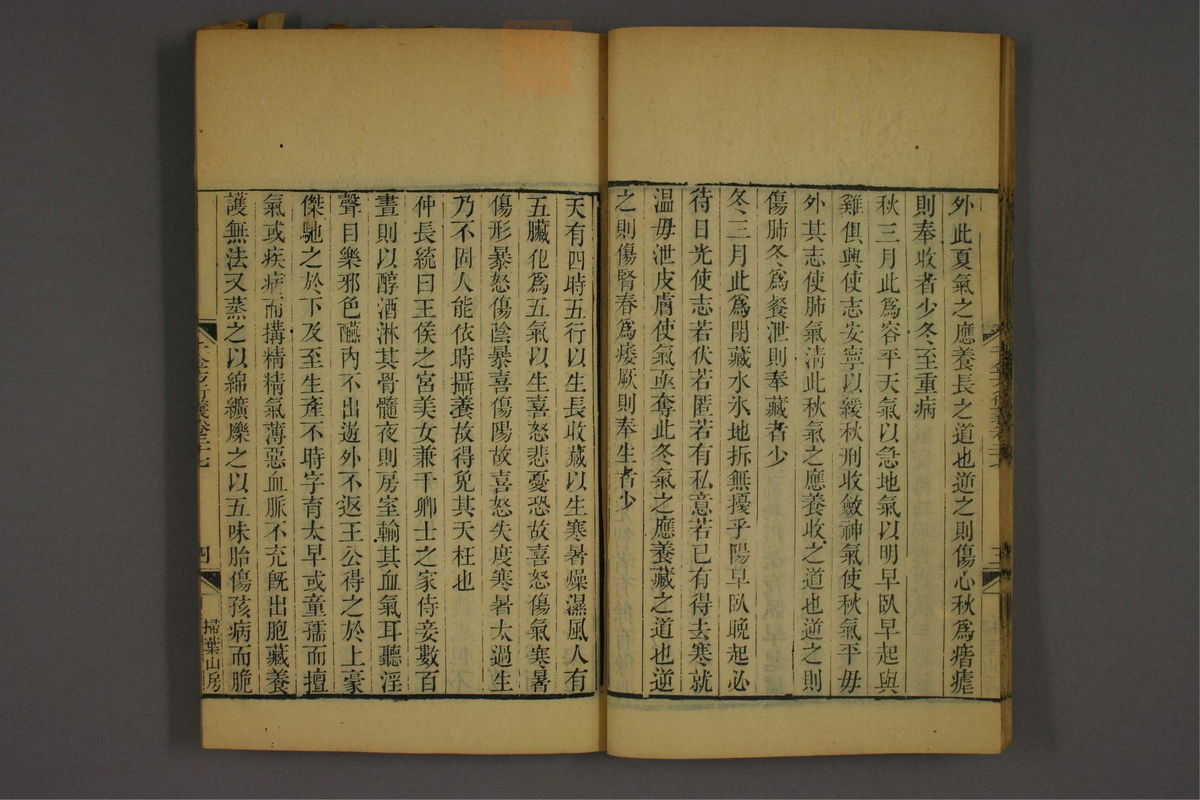 外此夏氣之應養長之道也逆之則傷心秋爲痎瘧
則奉收者少冬至重病
秋三月此爲容平天氣以急地氣以明早臥早起與
雞俱興使志安寧以緩秋刑收斂神氣使秋氣平毋
外其志使肺氣淸此秋氣之應養收之道也逆之則
傷肺冬爲餐泄則奉藏者少
冬三月此爲閉藏水氷地拆無擾乎陽早臥晚起必
待日光使志若伏若匿若有私意若已有得去寒就
温毋泄皮膚使氣亟奪此冬氣之應養藏之道也逆
之則傷腎春爲痿厥則奉生者少
天有四時五行以生長收藏以生寒暑燥濕風人有
五臟化爲五氣以生喜怒悲憂恐故喜怒傷氣寒暑
傷形暴怒傷陰暴喜傷陽故喜怒失度寒暑太過生
乃不固人能依時攝養故得免其夭枉也
仲長統曰王侯之宮美女兼千卿士之家侍妾數百
晝則以醇酒淋其骨髓夜則房室輸其血氣耳聽淫
聲目樂邪色醼內不出遊外不返王公得之於上豪
傑馳之於下及至生產不時字育太早或童孺而擅
氣或疾病而搆精精氣薄惡血脈不充旣出胞藏養
護無法又蒸之以綿纊爍之以五味胎傷孩病而脆
千金方衍義卷二十七
四
掃葉山房